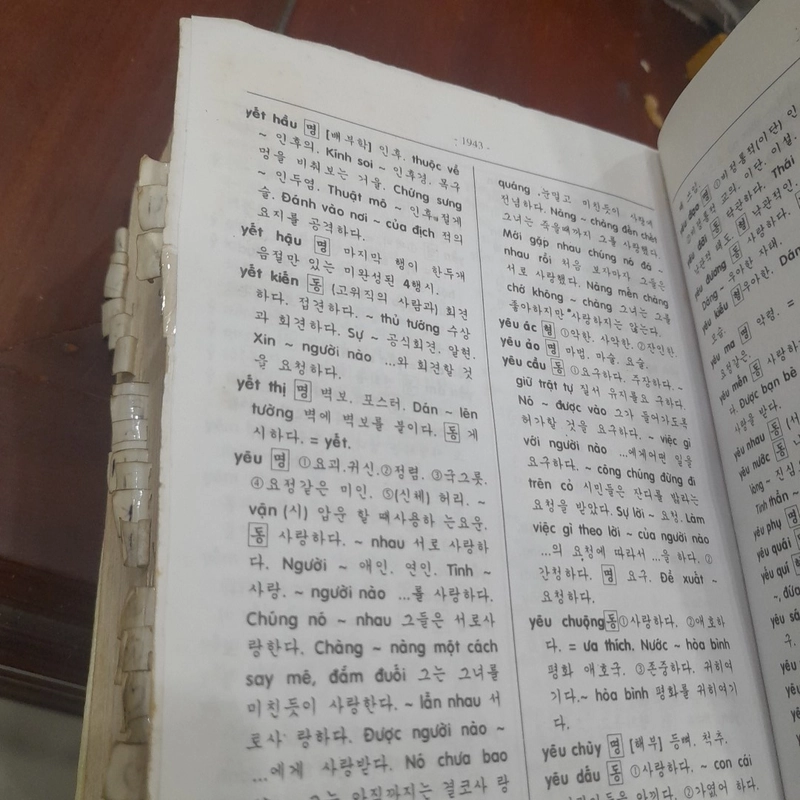 - 1943 -
yết hầu 명 [해부학] 인후. thuộc về
~ 인후의. Kính soi ~ 인후경. 목구
멍을 비춰보는 거울. Chứng sưng
~ 인두염. Thuật mổ ~ 인후절개
술. Đánh vào nơi ~ của địch 적의
요지를 공격하다.
yết hậu 명 마지막 행이 한두개
음절만 있는 미완성된 4행시.
yết kiến 동 (고위직의 사람과) 회견
하다. 접견하다. ~ thủ tướng 수상
과 회견하다. Sự ~ 공식회견. 알현.
Xin ~ người nào ...와 회견할 것
을 요청하다.
yết thị 명 벽보. 포스터. Dán ~ lên
tường 벽에 벽보를 붙이다. 동 게
시하다. = yết.
yêu 명 ①요괴.귀신.②정렴. ③국그릇.
④요정같은 미인. ⑤(신체) 허리. ~
vận (시) 압운 할 때사용하 는요운.
동 사랑하다. ~ nhau 서로 사랑하
다. Người ~ 애인. 연인. Tình ~
사랑. ~ người nào ...를 사랑하다.
Chúng nó ~ nhau 그들은 서로사
랑한다. Chàng ~ nàng một cách
say mê, đắm đuối 그는 그녀를
미친듯이 사랑한다. ~ lẫn nhau 서
로사 랑하다. Được người nào ~
...에게 사랑받다. Nó chưa bao
그는 아직까지는 결코사 랑
quáng 눈멀고 미친듯이 사랑에
전념하다. Nàng ~ chàng đến chết
그녀는 죽을때까지 그를 사랑했다.
Mới gặp nhau chúng nó đã ~
nhau rồi 처음 보자마자 그들은
서로 사랑했다. Nàng mến chàng
chớ không ~ chàng 그녀는 그를
좋아하지만 사랑하지는 않는다.
yêu ác 형 ①악한. 사악한. ②잔인한.
yêu ảo 명 마법. 마술. 요술.
yêu cầu 동 ①요구하다. 주장하다. ~
giữ trật tự 질서 유지를요 구하다.
Nó ~ được vào 그가 들어가도록
허가할 것을 요구하다. ~ việc gì
với người nào ...에게어떤 일을
요구하다. ~ công chúng đừng đi
trên cỏ 시민들은 잔디를 밟라는
요청을 받았다. Sự lời ~ 요청. Làm
việc gì theo lời ~ của người nào
...의 요청에 따라서 ...을 하다. ①
간청하다. 명 요구. Đề xuất ~
요청하다.
yêu chuộng 동①사랑하다. ②애호하
다. = ưa thích. Nước ~ hòa bình
평화 애호국. ③존중하다. 귀히여
기다.~ hòa bình 평화를 귀히여기
다.
yêu chùy 명 [해부] 등뼈. 척추.
yêu dấu 동 ①사랑하다. ~ con cái
아끼다. ②가엾어 하다.
yêu đạo 명
yêu đời 동 낙관하다. Thái
yêu đương 동 사랑하다.
Dáng ~ 우아한 자태.
yêu kiều 형 우아한. Dán
yêu ma 명 악령. =
yêu mến 동 사랑하
다. Được bạn bè
사랑을 받다.
yêu nhau 동 (서
yêu nước 동
lòng ~ 진심
Tinh thần ~
yêu phụ 명
yêu quái 명
yêu quí
~, đừa
yêu sá